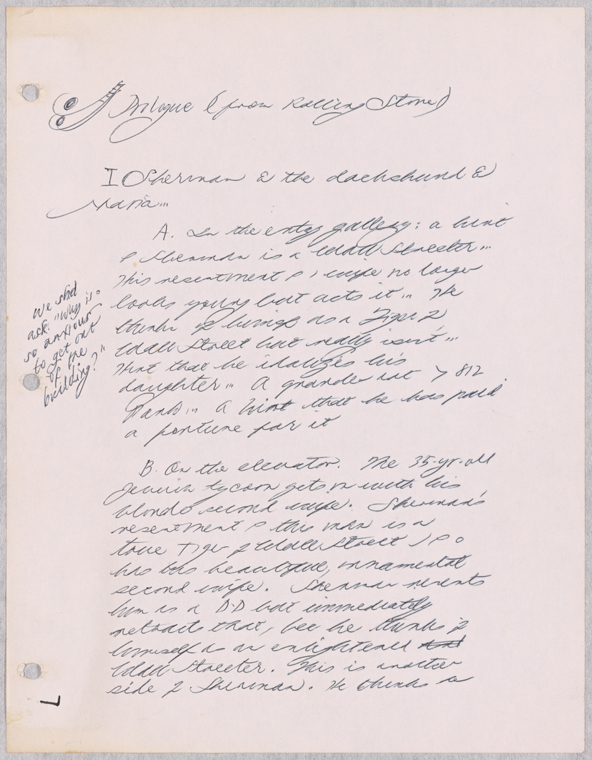 Prologue (from Rolling Stone)
I Sherman & the dachshund &
Maria...
A. In the entry gallery: a hint
Sherman is a Wall Streeter...
This resentment wife no longer
looks young but acts it... He
thinks of himself as a Tiger of
Wall Street but really isn't...
Hint that he idolizes his
daughter... A grande apt > 812
Park... A hint that he has paid
a fortune for it
We shd
ask: "Why is
so anxious
to get out
of the
building?"
B. On the elevator. The 35-yr-old
Jewish tycoon gets on with his
blonde second wife. Sherman's
resentment this man is a
true Tiger of Wall Street
has his beautiful, ornamental
second wife. Sherman resents
him as a but immediately
retracts that, bec he thinks of
himself as an enlightened
Wall Streeter. This is another
side of Sherman. He thinks